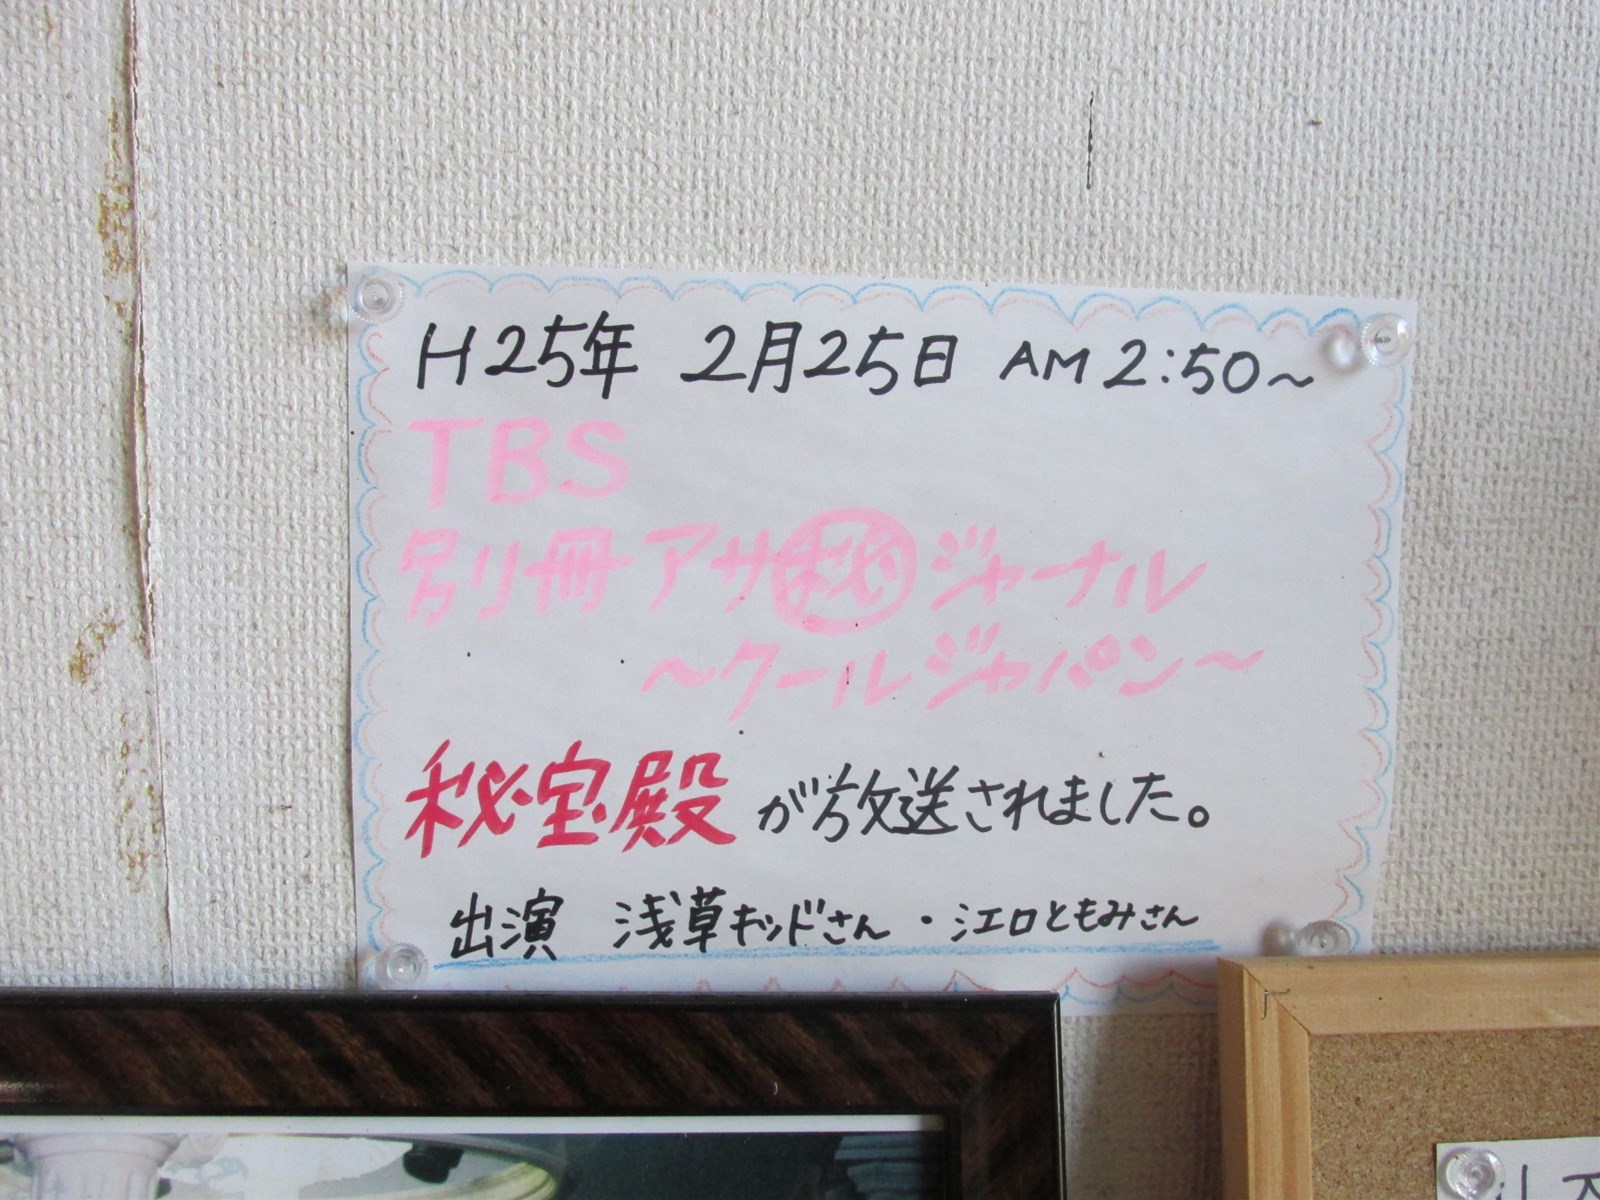 H25年 2月25日 AM2:50～
TBS
別冊アサ㊙ジャーナル
～クールジャパン～
秘宝殿が放送されました。
出演 浅草キッドさん・江口ともみさん